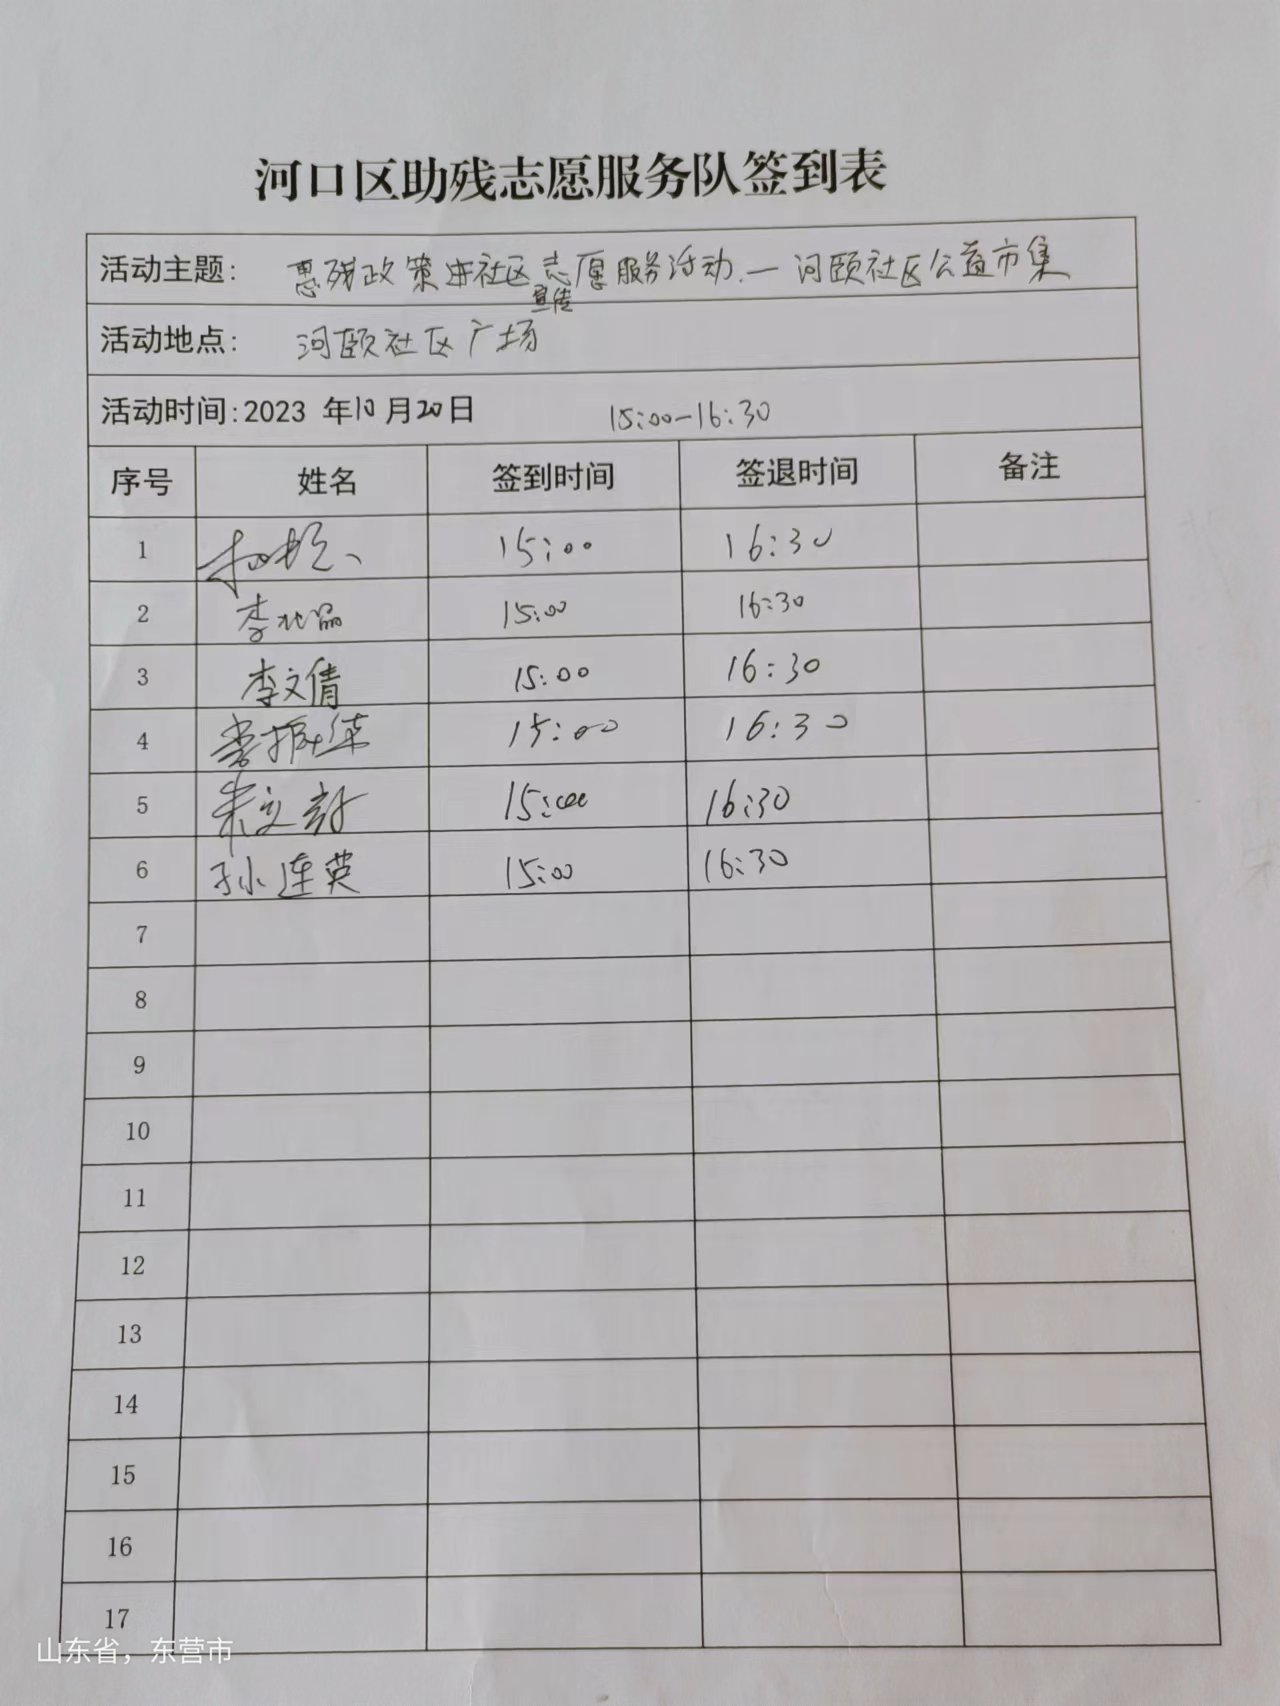 河口区助残志愿服务队签到表
活动主题: 惠残政策进社区宣传志愿服务活动.—河颐社区公益市集
活动地点: 河颐社区广场
活动时间:2023 年10月20日 15:00-16:30
序号 姓名 签到时间 签退时间 备注
1 15:00 16:30
2 李 15:00 16:30
3 李文倩 15:00 16:30
4 15:00 16:30
5 15:00 16:30
6 孙连英 15:00 16:30
7
8
9
10
11
12
13
14
15
16
17
山东省，东营市